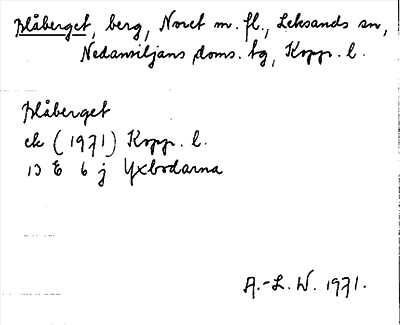 Blåberget, berg, Noret m. fl., Leksands sn,
Nedansiljans doms. tg, Kopp. l.
Blåberget
ek (1971) Kopp. l.
13 E 6 j Yxbodarna
A.-L. W. 1971.